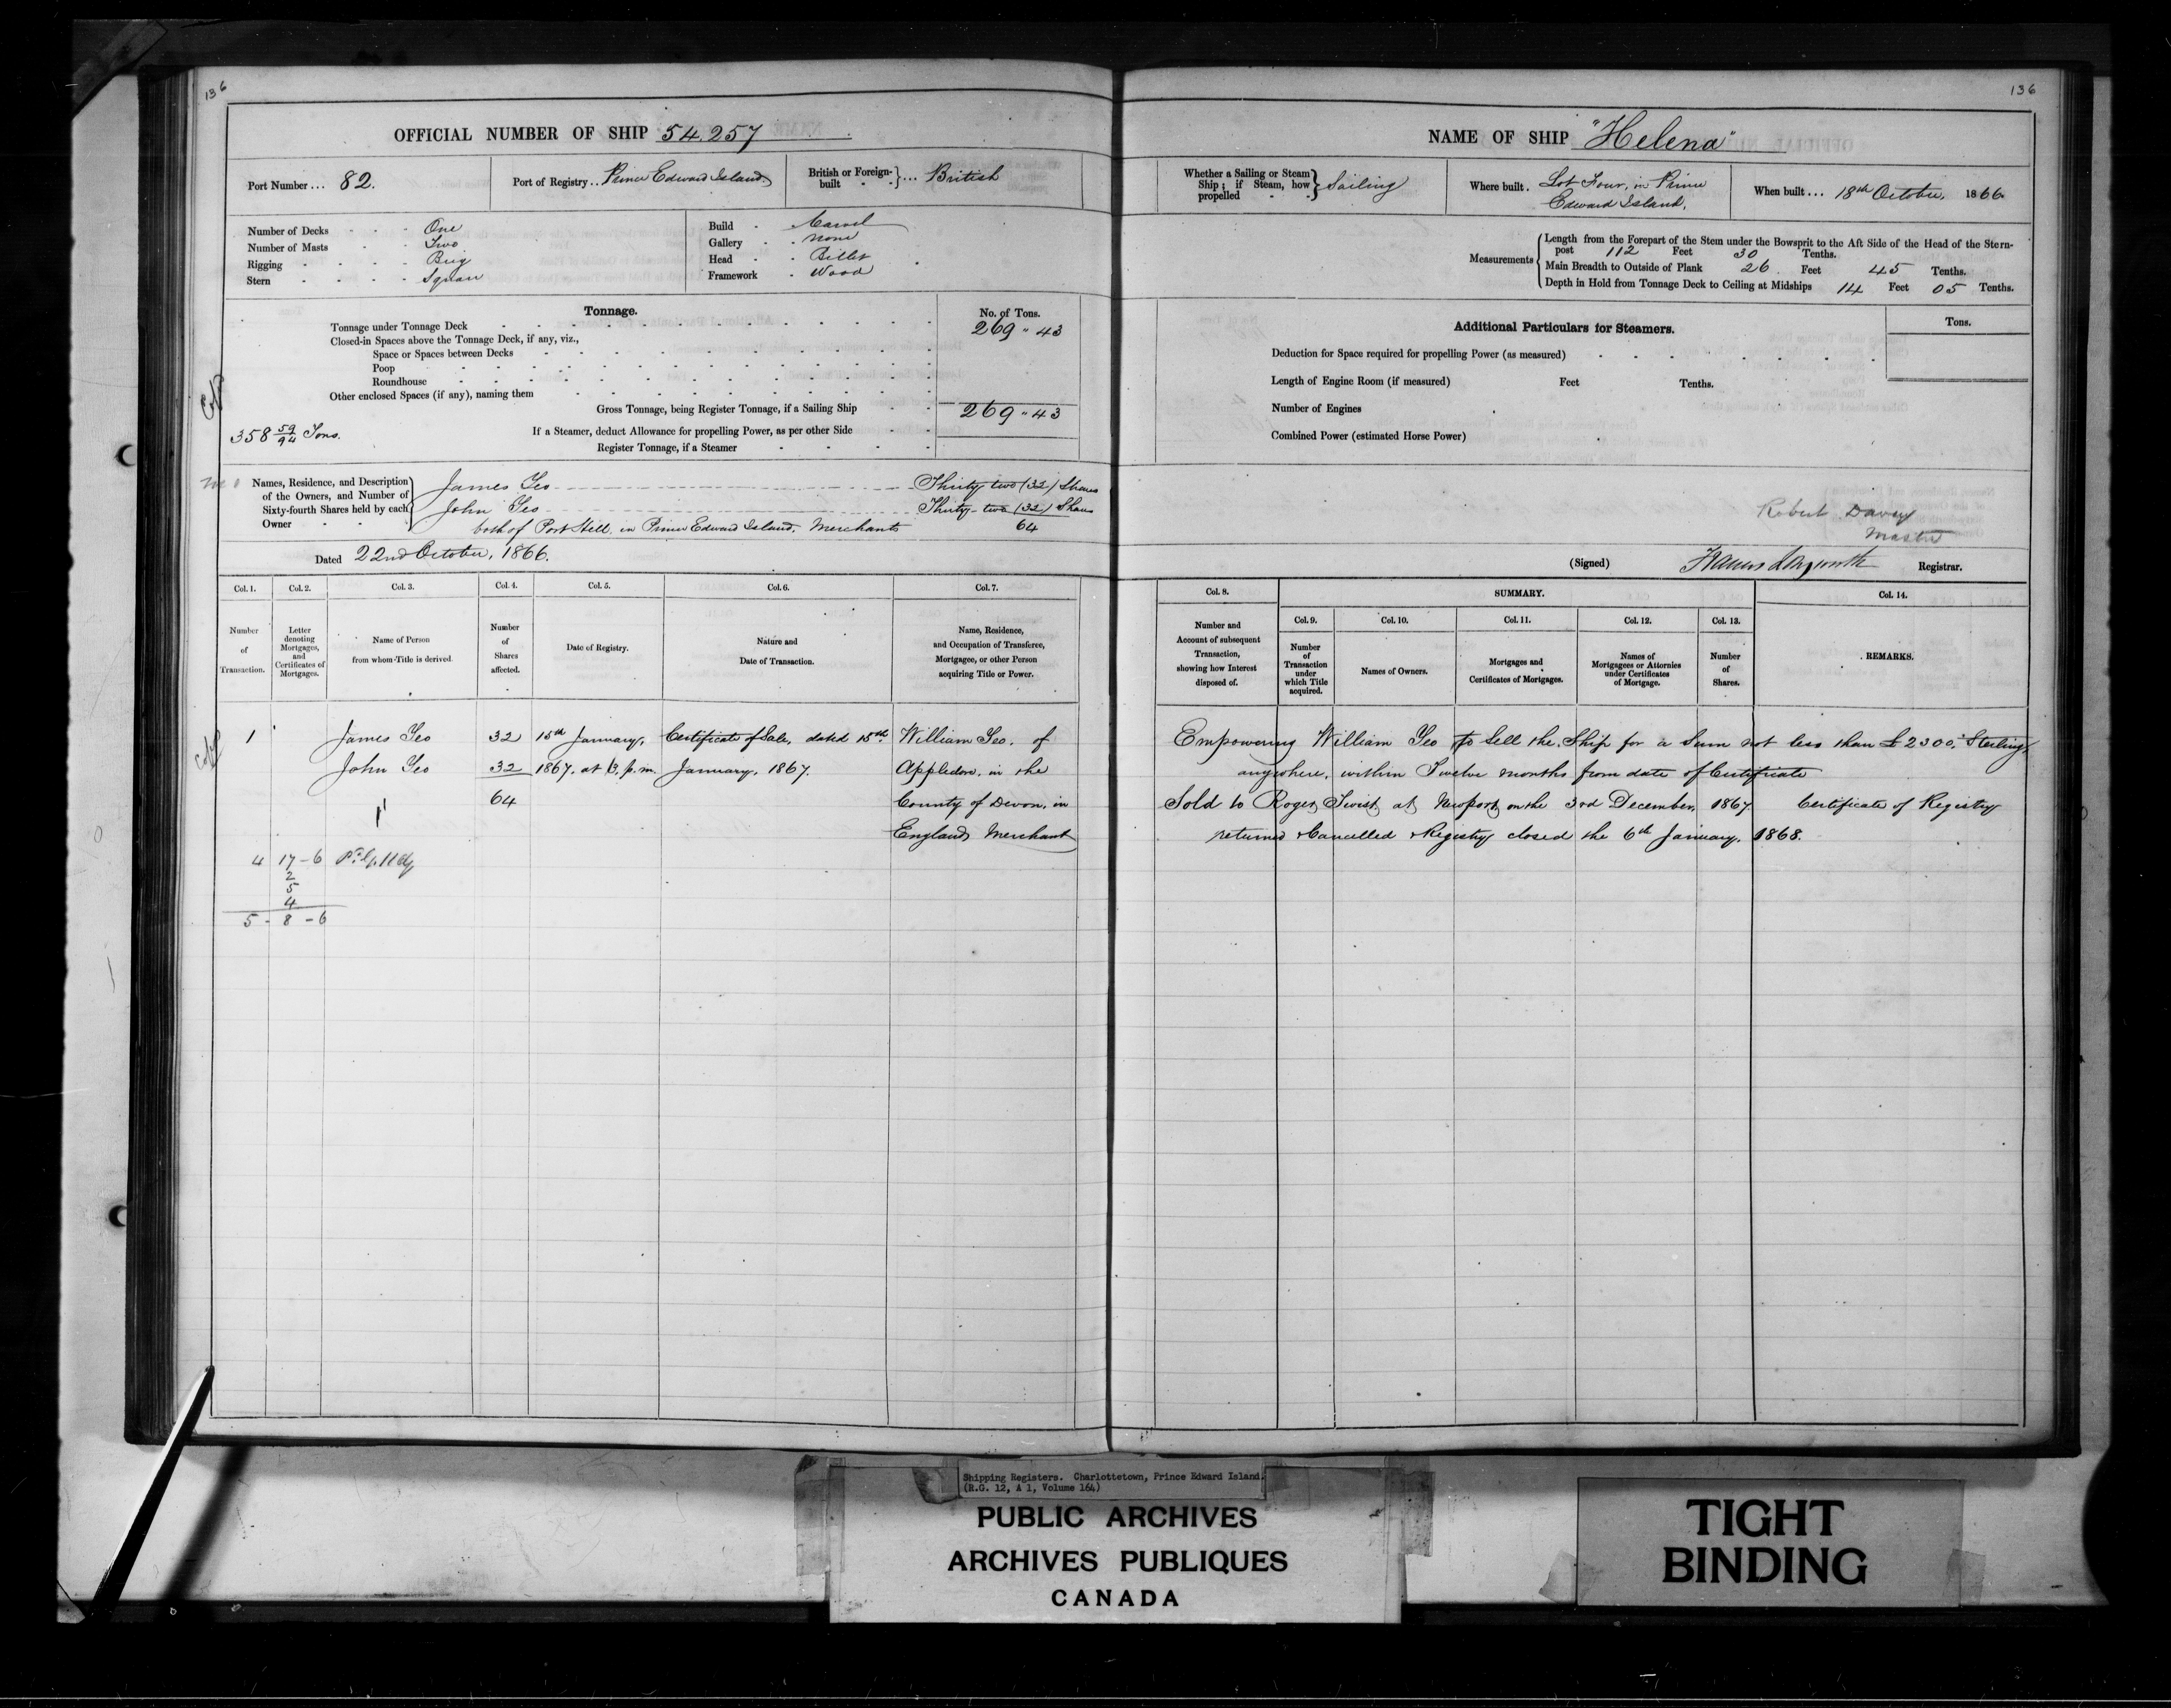 136
OFFICIAL NUMBER OF SHIP 54.257
Port Number ... 82.
Port of Registry .. Prince Edward Island.
British or Foreign-built } ... British
Number of Decks - - - One
Number of Masts - - Two
Rigging - - - - Brig
Stern - - - - Square
Build - Carvel
Gallery - - none
Head - - Billet
Framework - Wood
Tonnage.
No. of Tons.
Tonnage under Tonnage Deck 269 " 43
Closed-in Spaces above the Tonnage Deck, if any, viz.,
Space or Spaces between Decks
Poop
Roundhouse
Other enclosed Spaces (if any), naming them
Copy
Gross Tonnage, being Register Tonnage, if a Sailing Ship 269 " 43
358 59/94 Tons.
If a Steamer, deduct Allowance for propelling Power, as per other Side
Register Tonnage, if a Steamer
Names, Residence, and Description of the Owners, and Number of Sixty-fourth Shares held by each Owner
James Yeo Thirty two (32) Shares
John Yeo Thirty-two (32) Shares
both of Port Hill in Prince Edward Island, Merchants 64
Dated 22nd October, 1866.
Col. 1. Col. 2. Col. 3. Col. 4. Col. 5. Col. 6. Col. 7.
Number of Transaction.
Letter denoting Mortgages, and Certificates of Mortgages.
Name of Person from whom Title is derived.
Number of Shares affected.
Date of Registry.
Nature and Date of Transaction.
Name, Residence, and Occupation of Transferee, Mortgagee, or other Person acquiring Title or Power.
Copy
1 James Yeo 32 15th January, Certificate of Sale, dated 15th William Yeo. of
John Yeo 32 1867. at 3. p.m. January, 1867. Appledore, in the
64 County of Devon, in
England, Merchant
4 17-6
2
5
4
5-8-6
136
NAME OF SHIP "Helena"
Whether a Sailing or Steam Ship; if Steam, how propelled } Sailing
Where built . Lot Four, in Prince
Edward Island.
When built ... 18th October, 1866.
Measurements
Length from the Forepart of the Stem under the Bowsprit to the Aft Side of the Head of the Stern-
post 112 Feet 30 Tenths.
Main Breadth to Outside of Plank 26 . Feet 45 Tenths.
Depth in Hold from Tonnage Deck to Ceiling at Midships 14 Feet 05 Tenths.
Additional Particulars for Steamers.
Tons.
Deduction for Space required for propelling Power (as measured)
Length of Engine Room (if measured) Feet Tenths.
Number of Engines
Combined Power (estimated Horse Power)
Robert Davey
Master
(Signed) Francis Longworth Registrar.
Col. 8. SUMMARY. Col. 14.
Col. 9. Col. 10. Col. 11. Col. 12. Col. 13.
Number and Account of subsequent Transaction, showing how Interest disposed of.
Number of Transaction under which Title acquired.
Names of Owners.
Mortgages and Certificates of Mortgages.
Names of Mortgagees or Attornies under Certificates of Mortgage.
Number of Shares.
REMARKS.
Empowering William Yeo to Sell the Ship for a Sum not less than £2300. Sterling
anywhere, within Twelve months from date of Certificate
Sold to Roger Twist at Newport on the 3rd December, 1867 Certificate of Registry
returned & Cancelled & Registry closed the 6th January, 1868.
Shipping Registers. Charlottetown, Prince Edward Island.
(R.G. 12, A 1, Volume 164)
PUBLIC ARCHIVES
ARCHIVES PUBLIQUES
CANADA
TIGHT
BINDING